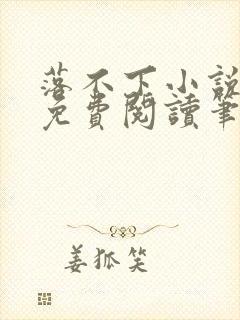 落不下小說
免費閱讀筆
姜狐笑